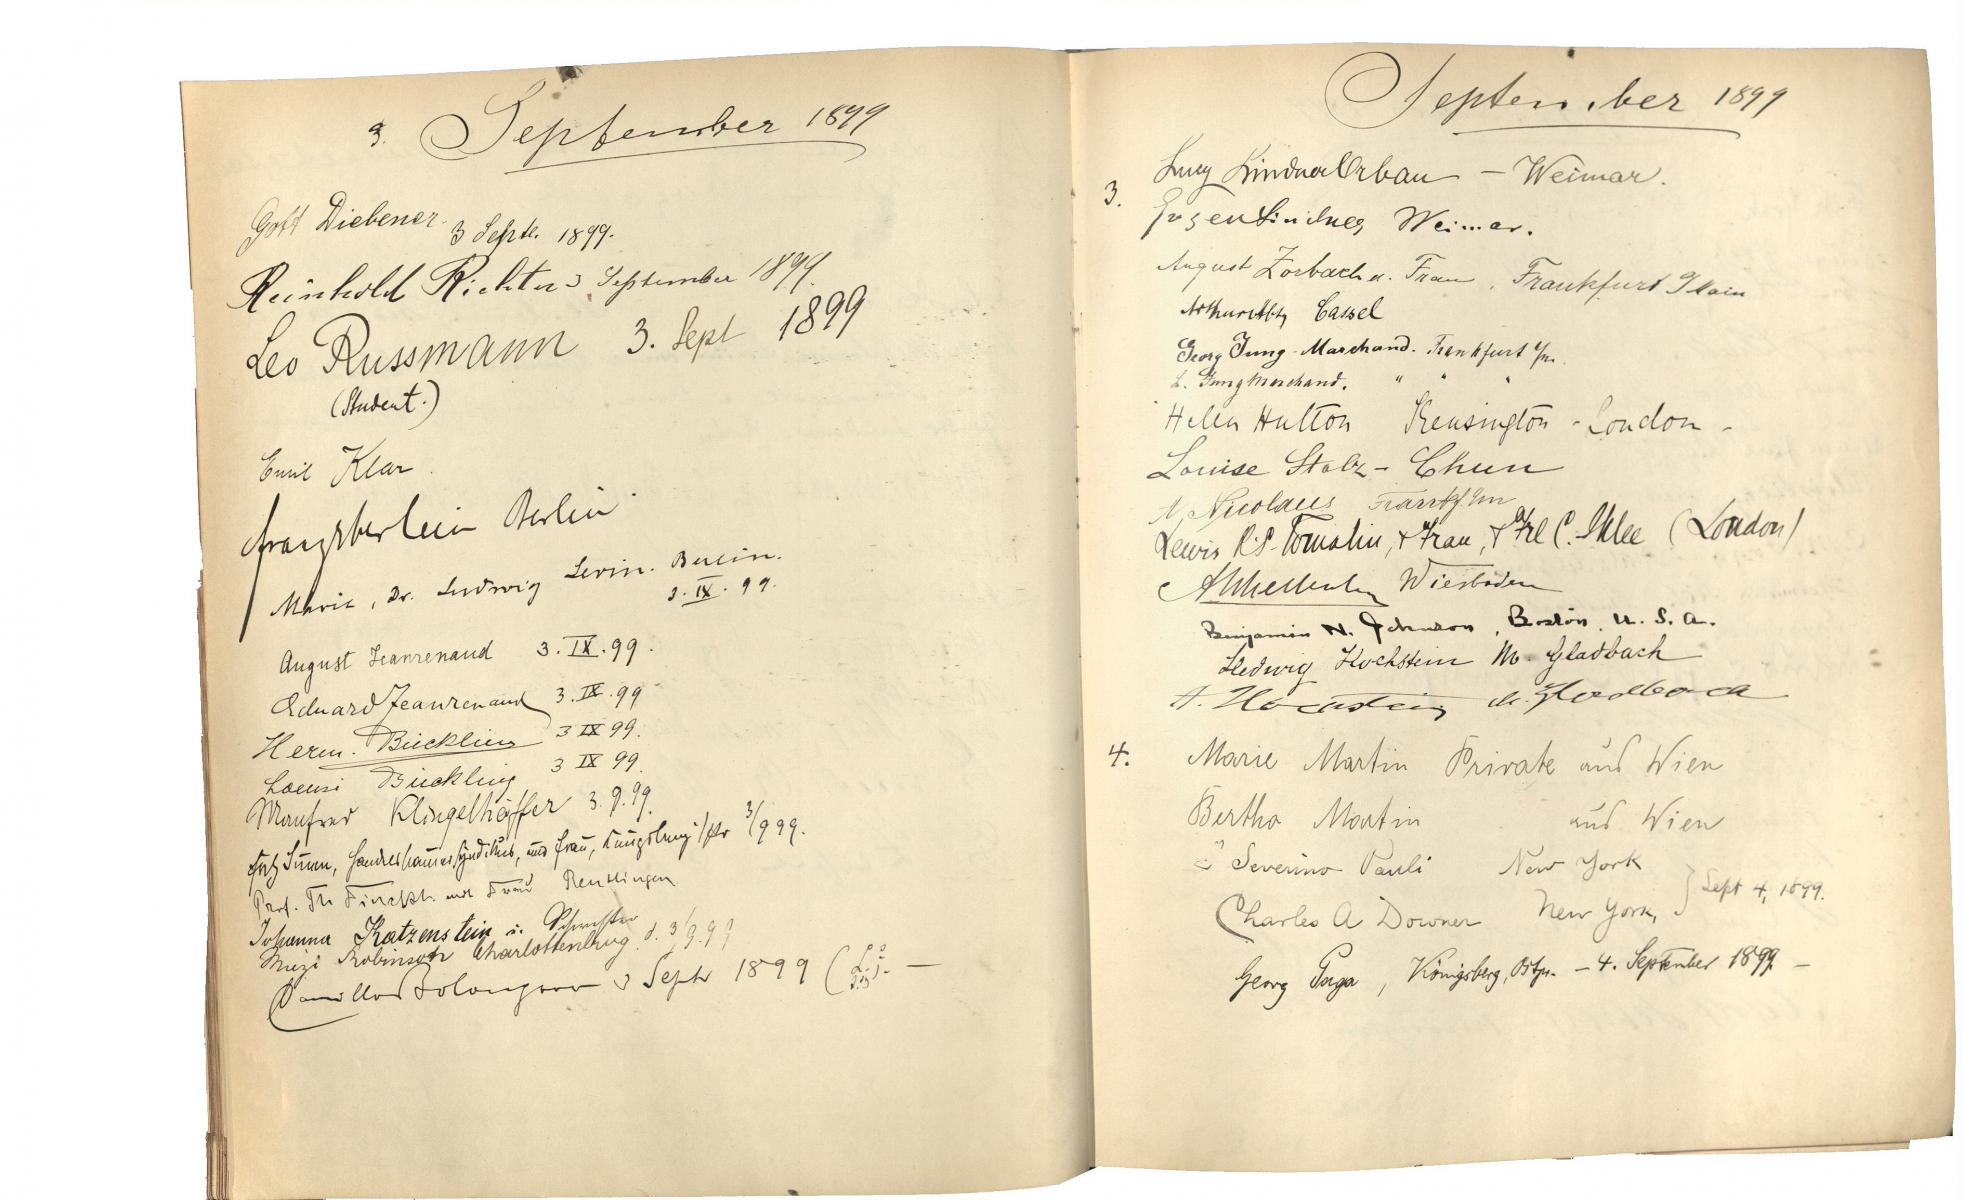 3. September 1899
Gott Diebener
3 Septe. 1899.
Reinhold Richter 3 September 1899.
Leo Russmann 3. Sept 1899
(Student.)
Emil Klar
Berlin
Marie, Dr. Ludwig Levin. Berlin.
3. IX. 99.
August Jeanrenaud 3. IX. 99.
Eduard Jeanrenaud 3. IX. 99
Herm. Bücklin 3 IX 99.
Bückling 3 IX 99.
Manfred Klingelhöffer 3. 9. 99.
und Frau, 3/9 99.
Prof. Th. und Frau Reutlingen
Johanna Katzenstein u. Schwester
Miezi Robinson Charlottenburg d. 3/9. 99
3 Septr 1899
September 1899
Lucy Lindner Orban - Weimar.
3. Eugen Lindner, Weimar.
August Zorbach u. Frau, Frankfurt Main
Arthur Cassel
Georg Jung-Marchand. Frankfurt a/m.
L. Jung Marchand. " " "
Helen Hutton Kensington - London -
Louise Stolz - Chun
N. Nicolaus Frankf. a/m
Lewis R. S. Tomalin, & Frau, & Frl C. Iklee (London)
Wiesbaden
Benjamin N. Johnson, Boston, U. S. A.
Hedwig Hochstein M. Gladbach
A. Hochstein M. Gladbach
4. Marie Martin Private aus Wien
Bertha Martin aus Wien
Severino Pauli New York
Charles A Downer New York, } Sept 4, 1899.
Georg Paga, Königsberg, Ostpr. - 4. September 1899 -